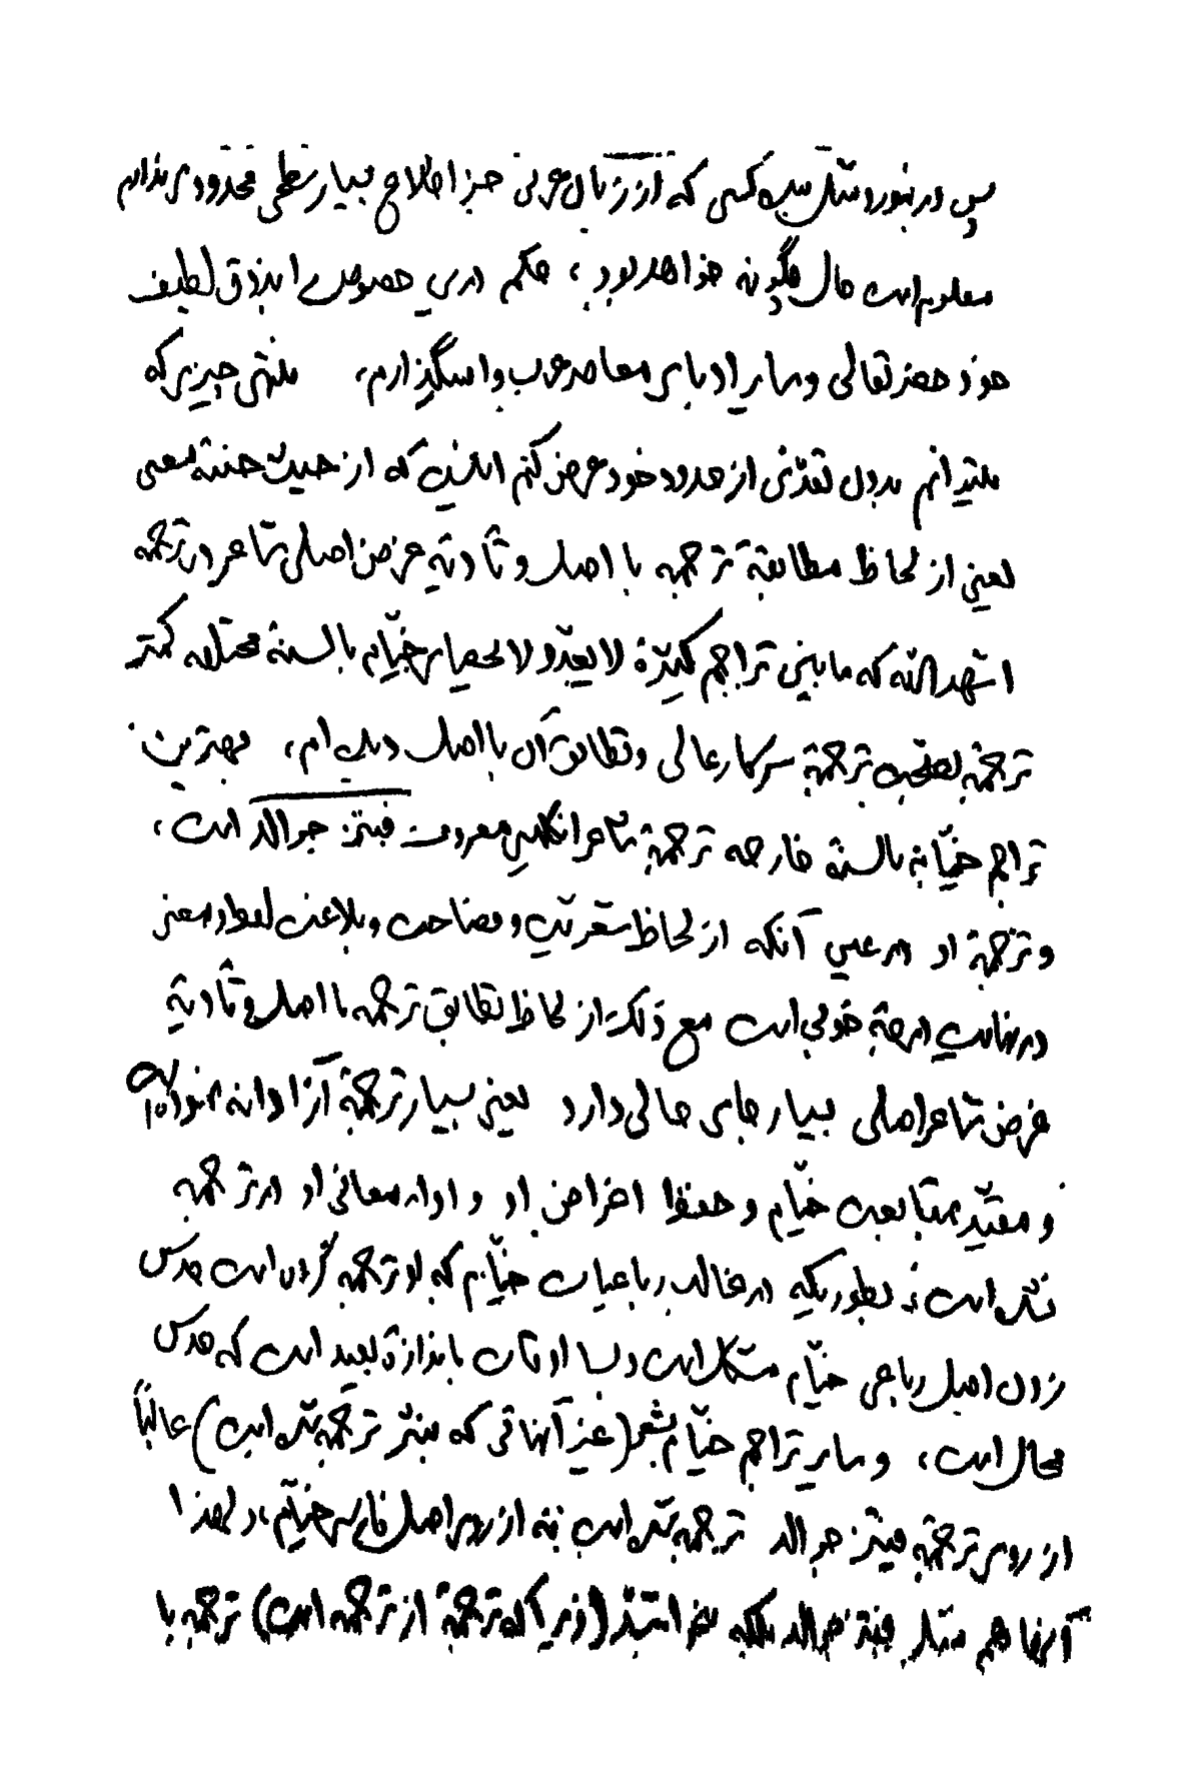 پس در مورد مثل بنده کسی که از زبان عربی جز اطلاع بسیار سطحی محدودی ندارم
معلوم است حال چگونه خواهد بود، حکم در این خصوص را بذوق لطیف
خود حضرتعالی و سایر ادبای معاصر عرب وا میگذارم، منتهی چیزی که
میتوانم بدون تعدّی از حدود خود عرض کنم اینست که از حیث جنبهٔ معنی
یعنی از لحاظ مطابقهٔ ترجمه با اصل و تأدیهٔ غرض اصلی شاعر در ترجمه
اشهد الله که ما بین تراجم کثیرهٔ لا یعدّ و لا یحصای خیّام بالسنهٔ مختلفه کمتر
ترجمهٔ بصحّت ترجمهٔ سرکار عالی و تطابق آن با اصل دیده‌ام، بهترین
تراجم خیّام بالسنهٔ خارجه ترجمهٔ شاعر انگلیسی معروف فیتز جرالد است،
و ترجمهٔ او در عین آنکه از لحاظ شعریّت و فصاحت و بلاغت لفظ و معنی
در نهایت درجهٔ خوبی است مع ذلک از لحاظ تطابق ترجمه با اصل و تأدیهٔ
غرض شاعر اصلی بسیار جای خالی دارد یعنی بسیار ترجمهٔ آزادانه نموده است
و مقیّد بمتابعت خیّام و حفظ اغراض او و اداء معانی او در ترجمه
نشده است، بطوریکه در غالب رباعیات خیّام که او ترجمه کرده است حدس
زدن اصل رباعی خیّام مشکل است و بسا اوقات باندازهٔ بعید است که حدس
محال است، و سایر تراجم خیّام بشعر (غیر آنهائی که بنثر ترجمه شده است) غالباً
از روی ترجمهٔ فیتز جرالد ترجمه شده است نه از روی اصل فارسی خیّام، و لهذا
آنها هم مثل فیتز جرالد بلکه بنحو اشدّ (زیرا که ترجمهٔ از ترجمه است) ترجمه با